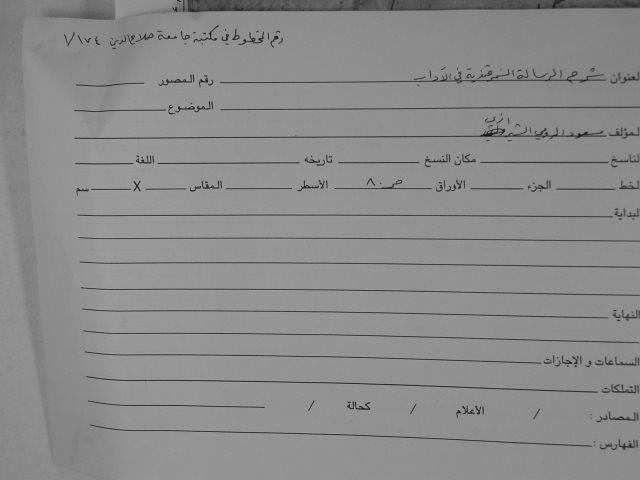 رقم المخطوط في مكتبة جامعة صلاح الدين ١/١٧٤
لعنوان شرح الرسالة السمرقندية في الآداب رقم المصور
الموضوع
ازي
لمؤلف مسعود الرومي الشير
لناسخ مكان النسخ تاريخه اللغة
لخط الجزء الأوراق ص ٨٠ الأسطر المقاس X سم
لبداية
النهاية
السماعات و الإجازات
التملكات
المصادر : / الأعلام / كحالة /
الفهارس :